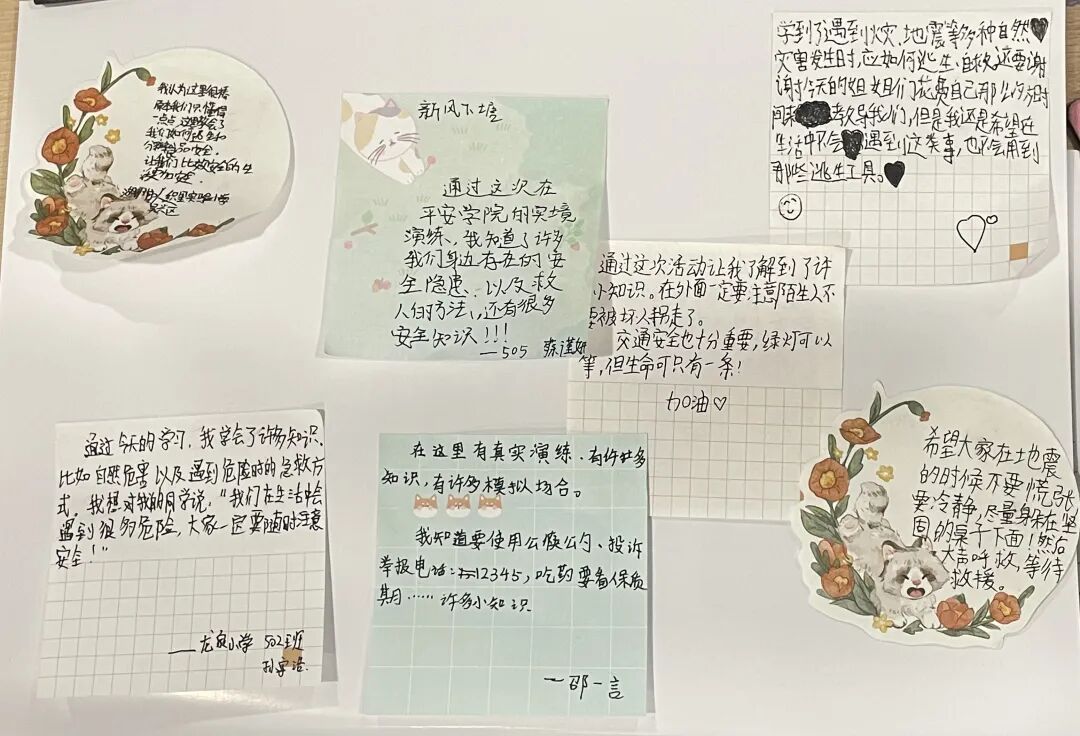 我认为这里很棒
原本我们只懂得
一点点,这里教会了
我们如何逃生和
分辨食品安全.
让我们比较安全的生
活更加安全.
新风下堡
通过这次在
平安学院的实境
演练、我知道了许多
我们身边存在的安
全隐患、以及救
人的方法,还有很多
安全知识!!!
—505
学到了遇到火灾.地震等多种自然
灾害发生时,应如何逃生.自救,还要谢
谢今天的姐姐们花费自己那么多时
间来教导我们,但是我还是希望在
生活中不会遇到这类事,也不会用到
那些逃生工具。
通过这次活动让我了解到了许
小知识。在外面一定要注意陌生人不
要被坏人拐走了。
交通安全也十分重要,绿灯可以
等,但生命可只有一条!
加油♡
通过今天的学习,我学会了许多知识.
比如自然危害以及遇到危险时的急救方
式。我想对我的同学说,“我们在生活中会
遇到很多危险,大家一定要随时注意
安全!”
——龙泉小学 502班
孙宇浩
在这里有真实演练、有许多
知识,有许多模拟场合。
我知道要使用公筷公勺、投诉
举报电话:12345,吃药要看保质
期……许多小知识
—邵一言
希望大家在地震
的时候不要慌张
要冷静,尽量躲在坚
固的桌子下面!然后
大声呼救,等待
救援。